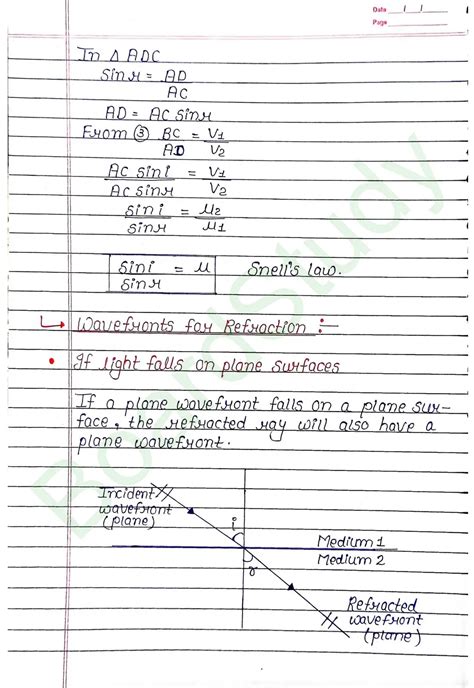 Date / /
Page
In Δ ADC
Sin r = AD
AC
AD = AC sin r
From ③ BC = V1
AD V2
AC sin i = V1
AC sin r V2
sin i = μ2
sin r μ1
sin i = μ Snell's law.
sin r
↳ Wavefronts for Refraction :-
• If light falls on plane surfaces
If a plane wavefront falls on a plane sur-
face, the refracted ray will also have a
plane wavefront.
Incident
wavefront
(plane)
i
Medium 1
Medium 2
r
Refracted
wavefront
(plane)
BoardStudy